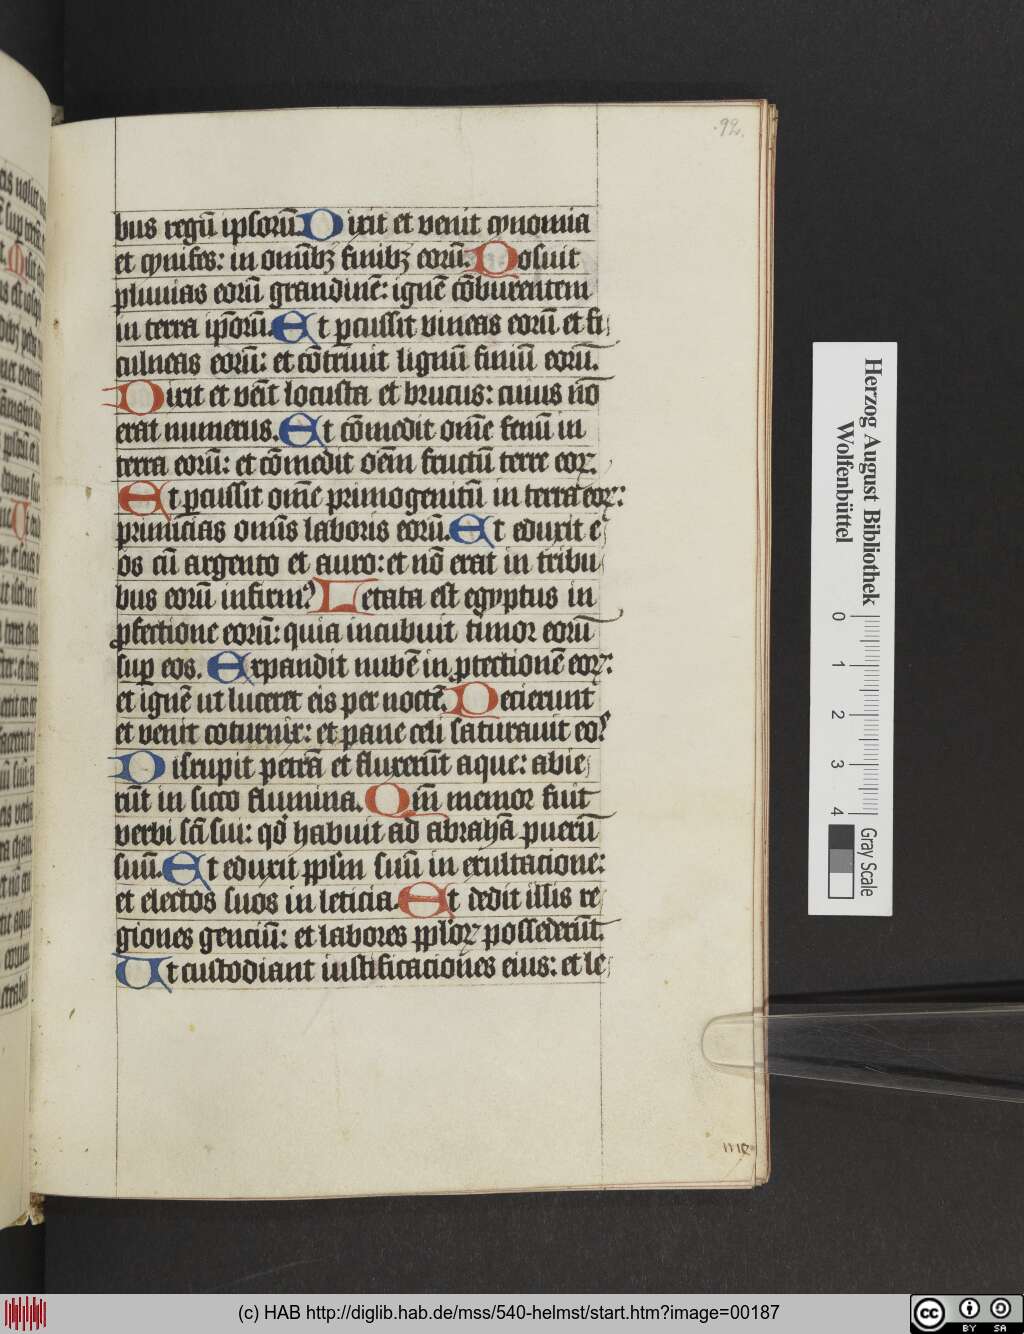 .92.
bus regū ipsorū. Dixit et venit cynomia
et cynifes: in omībꝫ finibꝫ eorū. Posuit
pluuias eorū grandinē: ignē cōburentem
in terra ip̄orū. Et ꝑcussit vineas eorū et fi
culneas eorū: et cōtriuit lignū finiū eorū.
Dixit et vēit locusta et brucus: cuius nō
erat numerus. Et cōmedit om̄e fenū in
terra eorū: et cōmedit oēm fructū terre eoꝝ.
Et ꝑcussit om̄e primogenitū in terra eoꝝ:
primicias om̄is laboris eorū. Et eduxit e
os cū argento et auro: et nō erat in tribu
bus eorū infirm᷒ Letata est egyptus in
ꝓfectione eorū: quia incubuit timor eorū
suꝑ eos. Expandit nubē in ꝓtectionē eoꝝ:
et ignē ut luceret eis per noctē. Pecierunt
et venit coturnix: et pane celi saturauit eos
Disrupit petrā et fluxerūt aque: abie
rūt in sicco flumina. Qm̄ memor fuit
verbi sc̄i sui: qď habuit ad abrahā puerū
suū. Et eduxit pplm suū in exultacione:
et electos suos in leticia. Et dedit illis re
giones genciū: et labores pploꝝ possederūt.
Ut custodiant iustificaciones eius: et le
Herzog August Bibliothek
Wolfenbüttel
0 1 2 3 4
Gray Scale
(c) HAB http://diglib.hab.de/mss/540-helmst/start.htm?image=00187
cc BY SA